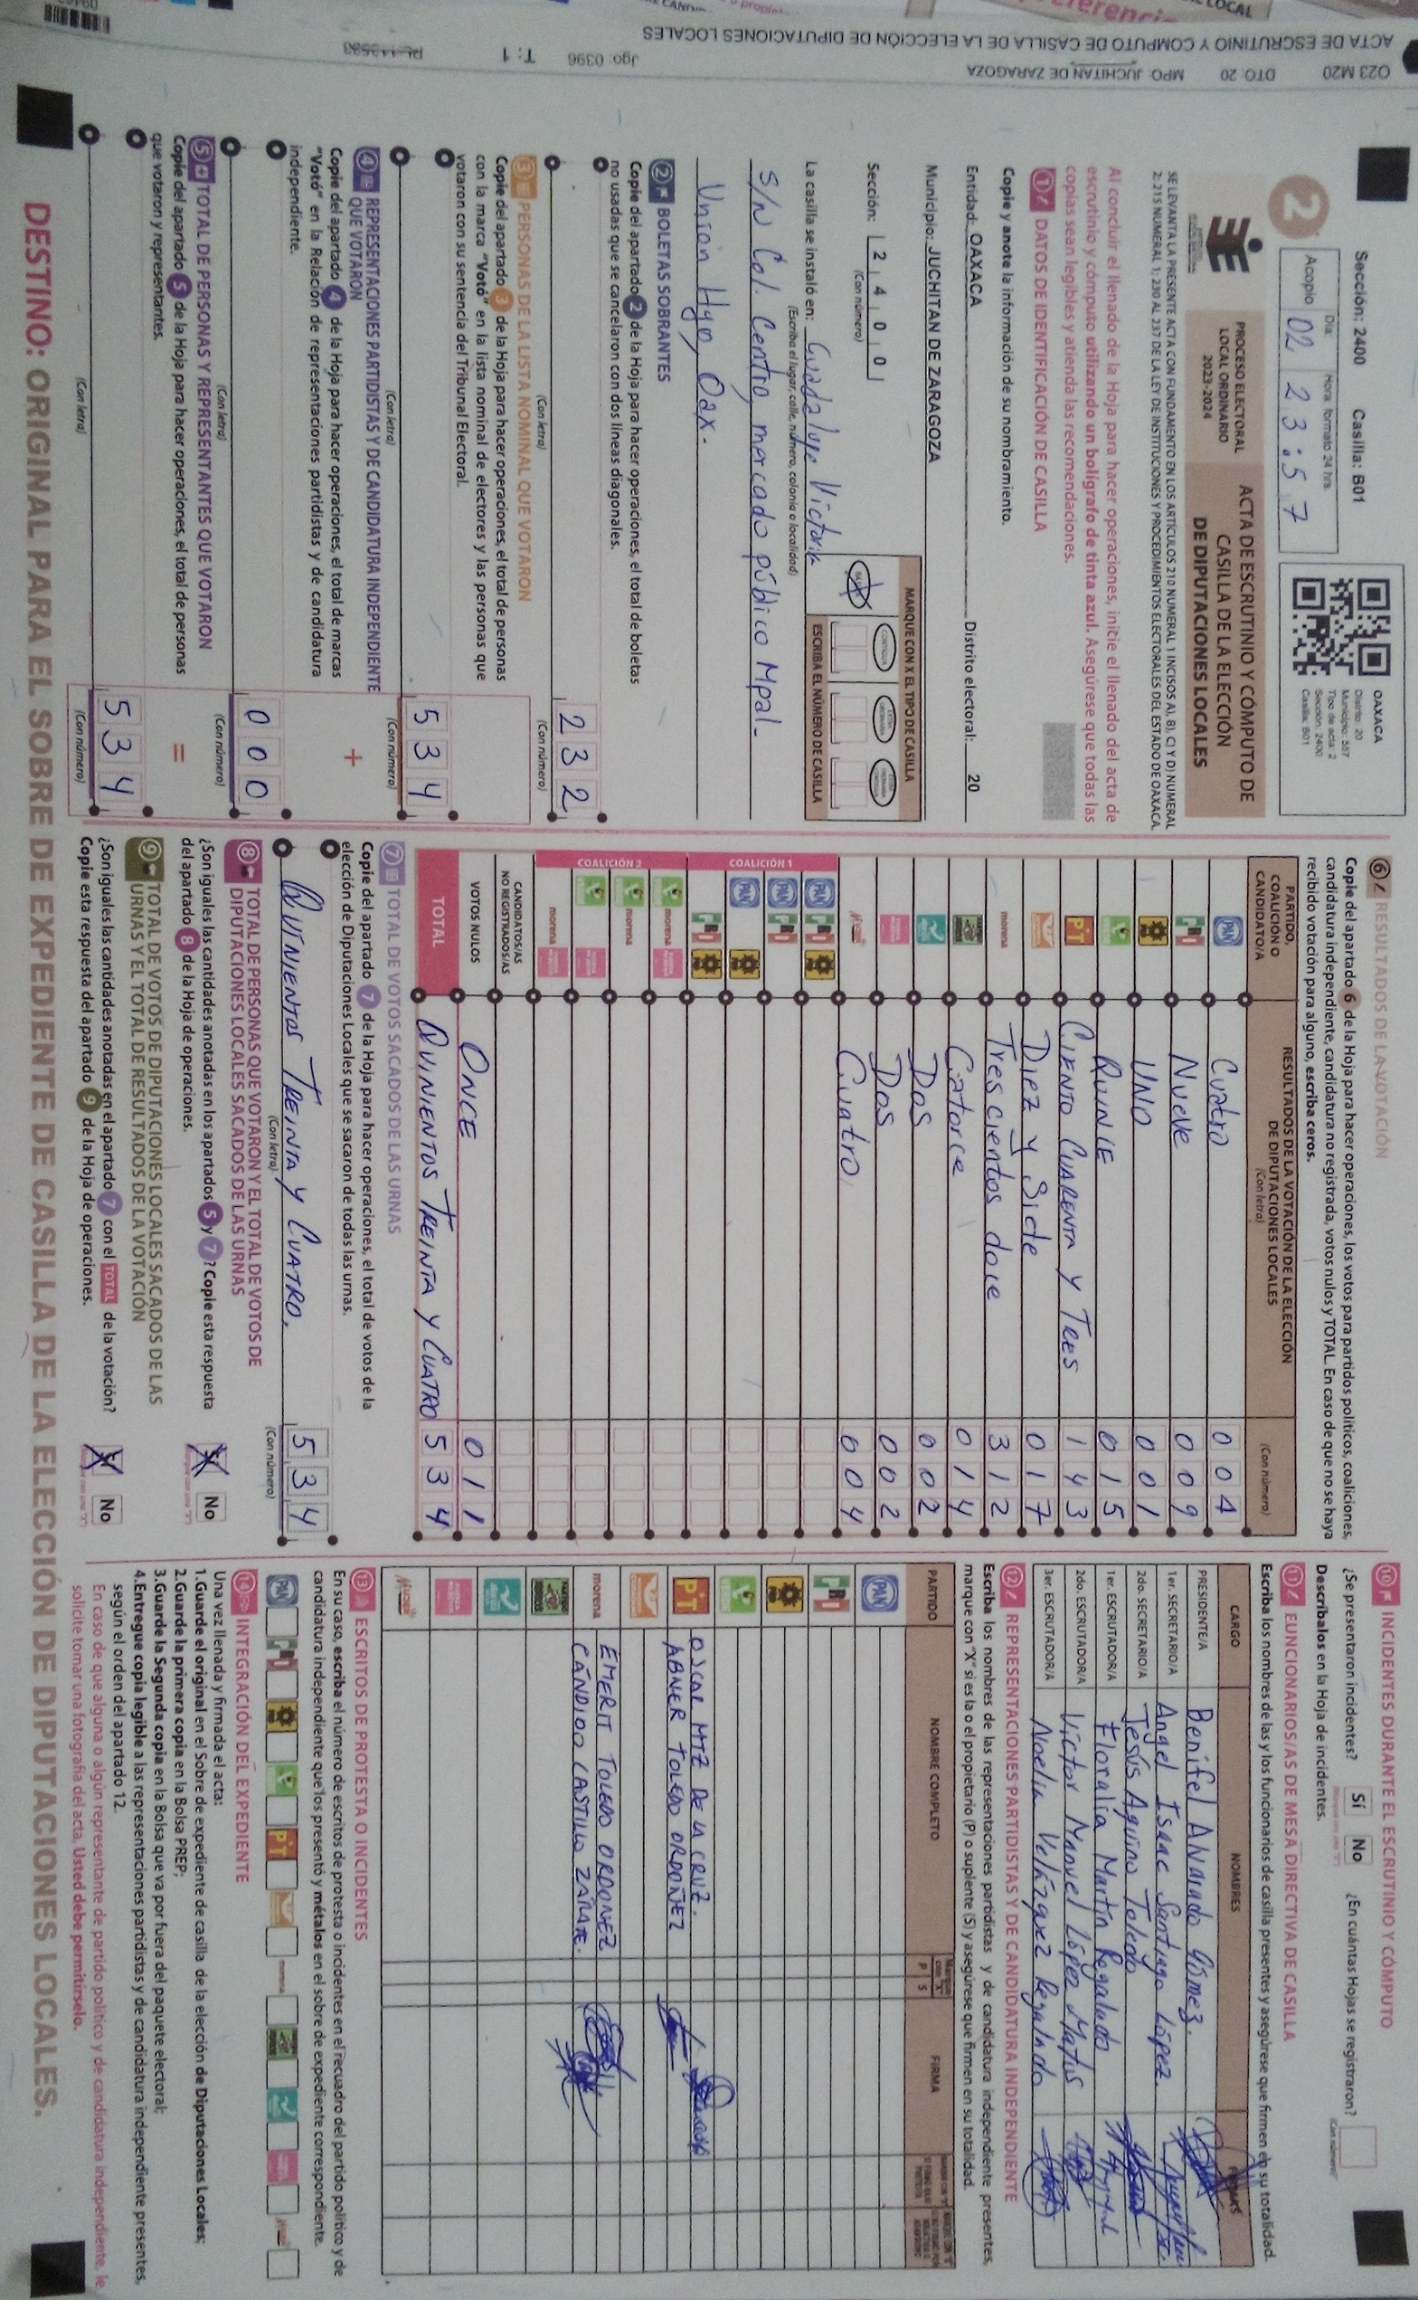 Sección: 2400 Casilla: B01
Día Hora: formato 24 hrs.
2 Acopio 02 23:57
OAXACA
Distrito: 20
Municipio: 557
Tipo de acta: 2
Sección: 2400
Casilla: B01
PROCESO ELECTORAL
LOCAL ORDINARIO
2023-2024
ACTA DE ESCRUTINIO Y CÓMPUTO DE
CASILLA DE LA ELECCIÓN
DE DIPUTACIONES LOCALES
SE LEVANTA LA PRESENTE ACTA CON FUNDAMENTO EN LOS ARTÍCULOS 210 NUMERAL 1 INCISOS A), B), C) Y D) NUMERAL
2; 215 NUMERAL 1; 230 AL 237 DE LA LEY DE INSTITUCIONES Y PROCEDIMIENTOS ELECTORALES DEL ESTADO DE OAXACA.
Al concluir el llenado de la Hoja para hacer operaciones, inicie el llenado del acta de
escrutinio y cómputo utilizando un bolígrafo de tinta azul. Asegúrese que todas las
copias sean legibles y atienda las recomendaciones.
1 DATOS DE IDENTIFICACIÓN DE CASILLA
Copie y anote la información de su nombramiento.
Entidad: OAXACA Distrito electoral: 20
Municipio: JUCHITAN DE ZARAGOZA
Sección: 2 4 0 0
(Con número)
MARQUE CON X EL TIPO DE CASILLA
ESCRIBA EL NÚMERO DE CASILLA
La casilla se instaló en: Guadalupe Victoria
(Escriba el lugar, calle, número, colonia o localidad)
S/N Col. Centro, mercado público Mpal-
Unión Hgo, Oax.
2 BOLETAS SOBRANTES
Copie del apartado 2 de la Hoja para hacer operaciones, el total de boletas
no usadas que se cancelaron con dos líneas diagonales.
232
(Con letra) (Con número)
3 PERSONAS DE LA LISTA NOMINAL QUE VOTARON
Copie del apartado 3 de la Hoja para hacer operaciones, el total de personas
con la marca "Votó" en la lista nominal de electores y las personas que
votaron con su sentencia del Tribunal Electoral.
534
(Con letra) (Con número)
4 REPRESENTACIONES PARTIDISTAS Y DE CANDIDATURA INDEPENDIENTE
QUE VOTARON
Copie del apartado 4 de la Hoja para hacer operaciones, el total de marcas
"Votó" en la Relación de representaciones partidistas y de candidatura
independiente.
+
000
(Con letra) (Con número)
5 TOTAL DE PERSONAS Y REPRESENTANTES QUE VOTARON
Copie del apartado 5 de la Hoja para hacer operaciones, el total de personas
que votaron y representantes.
=
534
(Con letra) (Con número)
6 RESULTADOS DE LA VOTACIÓN
Copie del apartado 6 de la Hoja para hacer operaciones, los votos para partidos políticos, coaliciones,
candidatura independiente, candidatura no registrada, votos nulos y TOTAL. En caso de que no se haya
recibido votación para alguno, escriba ceros.
PARTIDO, COALICIÓN O CANDIDATO/A
RESULTADOS DE LA VOTACIÓN DE LA ELECCIÓN DE DIPUTACIONES LOCALES
(Con letra) (Con número)
PAN Cuatro 004
PRI Nueve 009
PRD UNO 001
QUINCE 015
PT CIENTO CUARENTA Y TRES 143
Diez y Siete 017
morena Trescientos doce 312
Catorce 014
Dos 002
Dos 002
Cuatro 004
COALICIÓN 1
PAN PRI PRD
PAN PRI
PAN PRD
PRI PRD
COALICIÓN 2
morena
morena
morena
CANDIDATOS/AS
NO REGISTRADOS/AS
VOTOS NULOS ONCE 011
TOTAL QUINIENTOS TREINTA Y CUATRO 534
7 TOTAL DE VOTOS SACADOS DE LAS URNAS
Copie del apartado 7 de la Hoja para hacer operaciones, el total de votos de la
elección de Diputaciones Locales que se sacaron de todas las urnas.
QUINIENTOS TREINTA Y CUATRO. 534
(Con letra) (Con número)
8 TOTAL DE PERSONAS QUE VOTARON Y EL TOTAL DE VOTOS DE
DIPUTACIONES LOCALES SACADOS DE LAS URNAS
¿Son iguales las cantidades anotadas en los apartados 5 y 7? Copie esta respuesta
del apartado 8 de la Hoja de operaciones.
Sí No
9 TOTAL DE VOTOS DE DIPUTACIONES LOCALES SACADOS DE LAS
URNAS Y EL TOTAL DE RESULTADOS DE LA VOTACIÓN
¿Son iguales las cantidades anotadas en el apartado 7 con el TOTAL de la votación?
Copie esta respuesta del apartado 9 de la Hoja de operaciones.
Sí No
10 INCIDENTES DURANTE EL ESCRUTINIO Y CÓMPUTO
¿Se presentaron incidentes? Sí No ¿En cuántas Hojas se registraron?
Descríbalos en la Hoja de incidentes.
(Con número)
11 FUNCIONARIOS/AS DE MESA DIRECTIVA DE CASILLA
Escriba los nombres de las y los funcionarios de casilla presentes y asegúrese que firmen en su totalidad.
CARGO NOMBRES FIRMAS
PRESIDENTE/A Benifel Alvarado Gómez.
1er. SECRETARIO/A Angel Isaac Santiago López.
2do. SECRETARIO/A Jesús Aquino Toledo
1er. ESCRUTADOR/A Floralia Martín Regalado
2do. ESCRUTADOR/A Victor Manuel López Matus
3er. ESCRUTADOR/A Noelia Velázquez Regalado
12 REPRESENTACIONES PARTIDISTAS Y DE CANDIDATURA INDEPENDIENTE
Escriba los nombres de las representaciones partidistas y de candidatura independiente presentes,
marque con "X" si es la o el propietario (P) o suplente (S) y asegúrese que firmen en su totalidad.
PARTIDO NOMBRE COMPLETO P S FIRMA
PAN
PRI
PRD
PT OSCAR MTZ DE LA CRUZ.
ABNER TOLEDO ORDOÑEZ
morena EMERIT TOLEDO ORDOÑEZ
CÁNDIDO CASTILLO ZÁRATE.
13 ESCRITOS DE PROTESTA O INCIDENTES
En su caso, escriba el número de escritos de protesta o incidentes en el recuadro del partido político y de
candidatura independiente que los presentó y métalos en el sobre de expediente correspondiente.
PAN PRI PRD PT morena
14 INTEGRACIÓN DEL EXPEDIENTE
Una vez llenada y firmada el acta:
1.Guarde el original en el Sobre de expediente de casilla de la elección de Diputaciones Locales;
2.Guarde la primera copia en la Bolsa PREP;
3.Guarde la Segunda copia en la Bolsa que va por fuera del paquete electoral;
4.Entregue copia legible a las representaciones partidistas y de candidatura independiente presentes,
según el orden del apartado 12.
En caso de que alguna o algún representante de partido político y de candidatura independiente, le
solicite tomar una fotografía del acta, Usted debe permitírselo.
DESTINO: ORIGINAL PARA EL SOBRE DE EXPEDIENTE DE CASILLA DE LA ELECCIÓN DE DIPUTACIONES LOCALES.
O23 M20 DTO: 20 MPO: JUCHITAN DE ZARAGOZA
ACTA DE ESCRUTINIO Y COMPUTO DE CASILLA DE LA ELECCIÓN DE DIPUTACIONES LOCALES
Jgo: 0396 T: 1
LOCAL